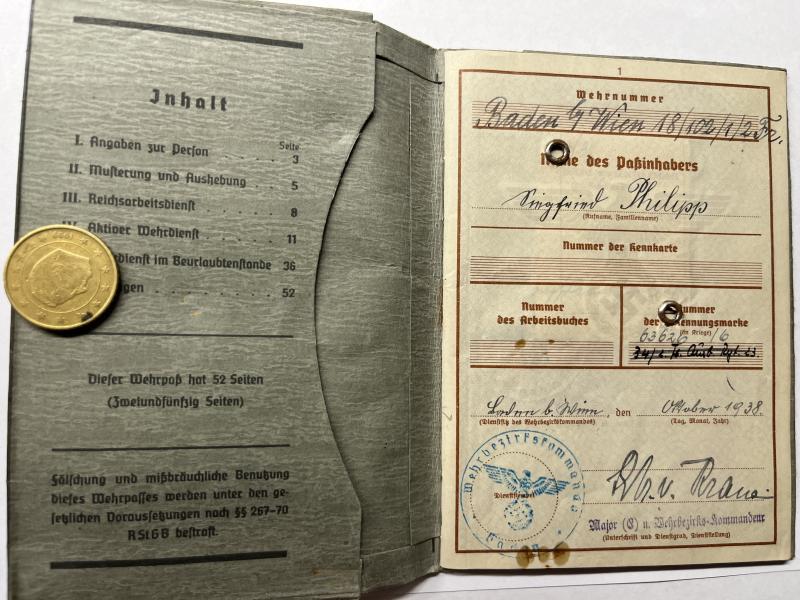 Inhalt
Seite
I. Angaben zur Person . . . . . 3
II. Musterung und Aushebung . . . . 5
III. Reichsarbeitsdienst . . . . . . 8
IV. Aktiver Wehrdienst . . . . . . 11
dienst im Beurlaubtenstande 36
gen . . . . . . . . . 52
Dieser Wehrpaß hat 52 Seiten
(Zweiundfünfzig Seiten)
Fälschung und mißbräuchliche Benutzung
dieses Wehrpasses werden unter den ge-
setzlichen Voraussetzungen nach §§ 267-70
RStGB bestraft.
1
Wehrnummer
Baden b/ Wien 18/102/1/2
des Paßinhabers
Siegfried Philipp
(Rufname, Familienname)
Nummer der Kennkarte
Nummer
des Arbeitsbuches
Nummer
der Erkennungsmarke
(im Kriege)
63626 16
Baden b. Wien, den Oktober 1938.
(Dienstsitz des Wehrbezirkskommandos)
(Tag, Monat, Jahr)
Wehrbezirkskommando
Baden
(Dienststempel)
Major (E) u. Wehrbezirks-Kommandeur
(Unterschrift und Dienstgrad, Dienststellung)